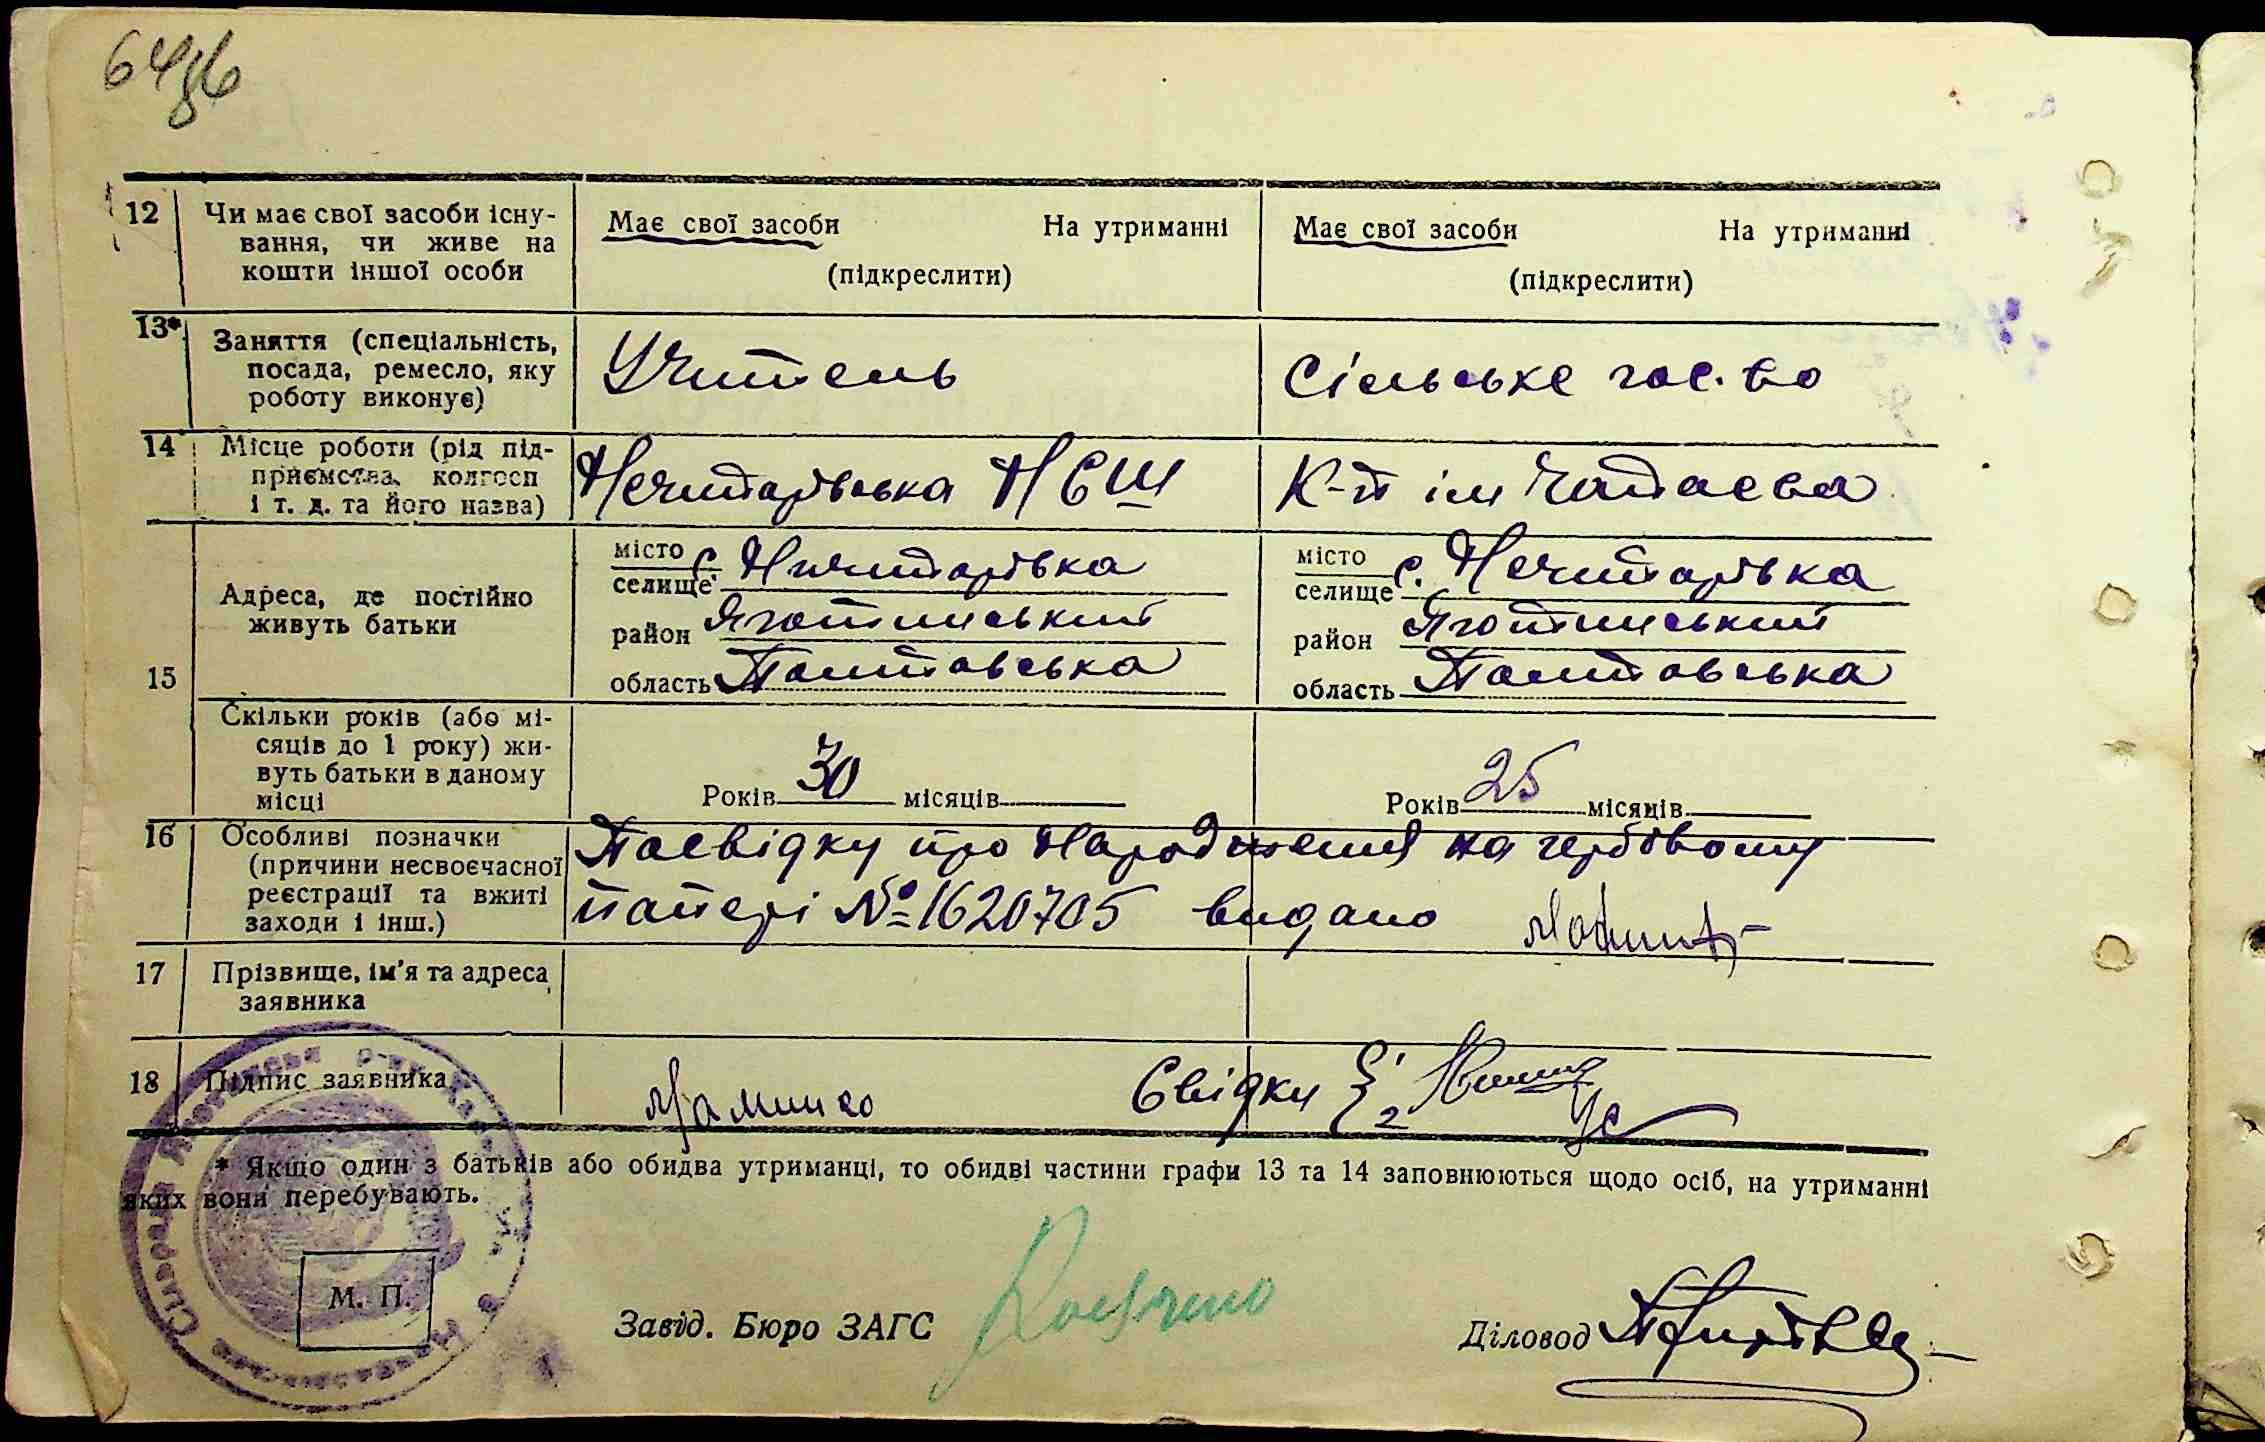 12 Чи має свої засоби існу-
вання, чи живе на
кошти іншої особи
Має свої засоби На утриманні
(підкреслити)
Має свої засоби На утриманні
(підкреслити)
13* Заняття (спеціальність,
посада, ремесло, яку
роботу виконує)
Учитель
Сільське гос-во
14 Місце роботи (рід під-
приємства, колгосп
і т. д. та його назва)
Нечипорівська НСШ
К-п ім Чапаєва
15 Адреса, де постійно
живуть батьки
місто
селище с. Ничипорівка
район Яготинський
область Полтавська
місто
селище с. Нечипорівка
район Яготинський
область Полтавська
Скільки років (або мі-
сяців до 1 року) жи-
вуть батьки в даному
місці
Років 30 місяців
Років 25 місяців
16 Особливі позначки
(причини несвоєчасної
реєстрації та вжиті
заходи і інш.)
Посвідку про народження на гербовому
папері № 1620705 видано
17 Прізвище, ім'я та адреса
заявника
18 Підпис заявника
Свідки 1
2
* Якщо один з батьків або обидва утриманці, то обидві частини графи 13 та 14 заповнюються щодо осіб, на утриманні
яких вони перебувають.
М. П.
Завід. Бюро ЗАГС
Діловод